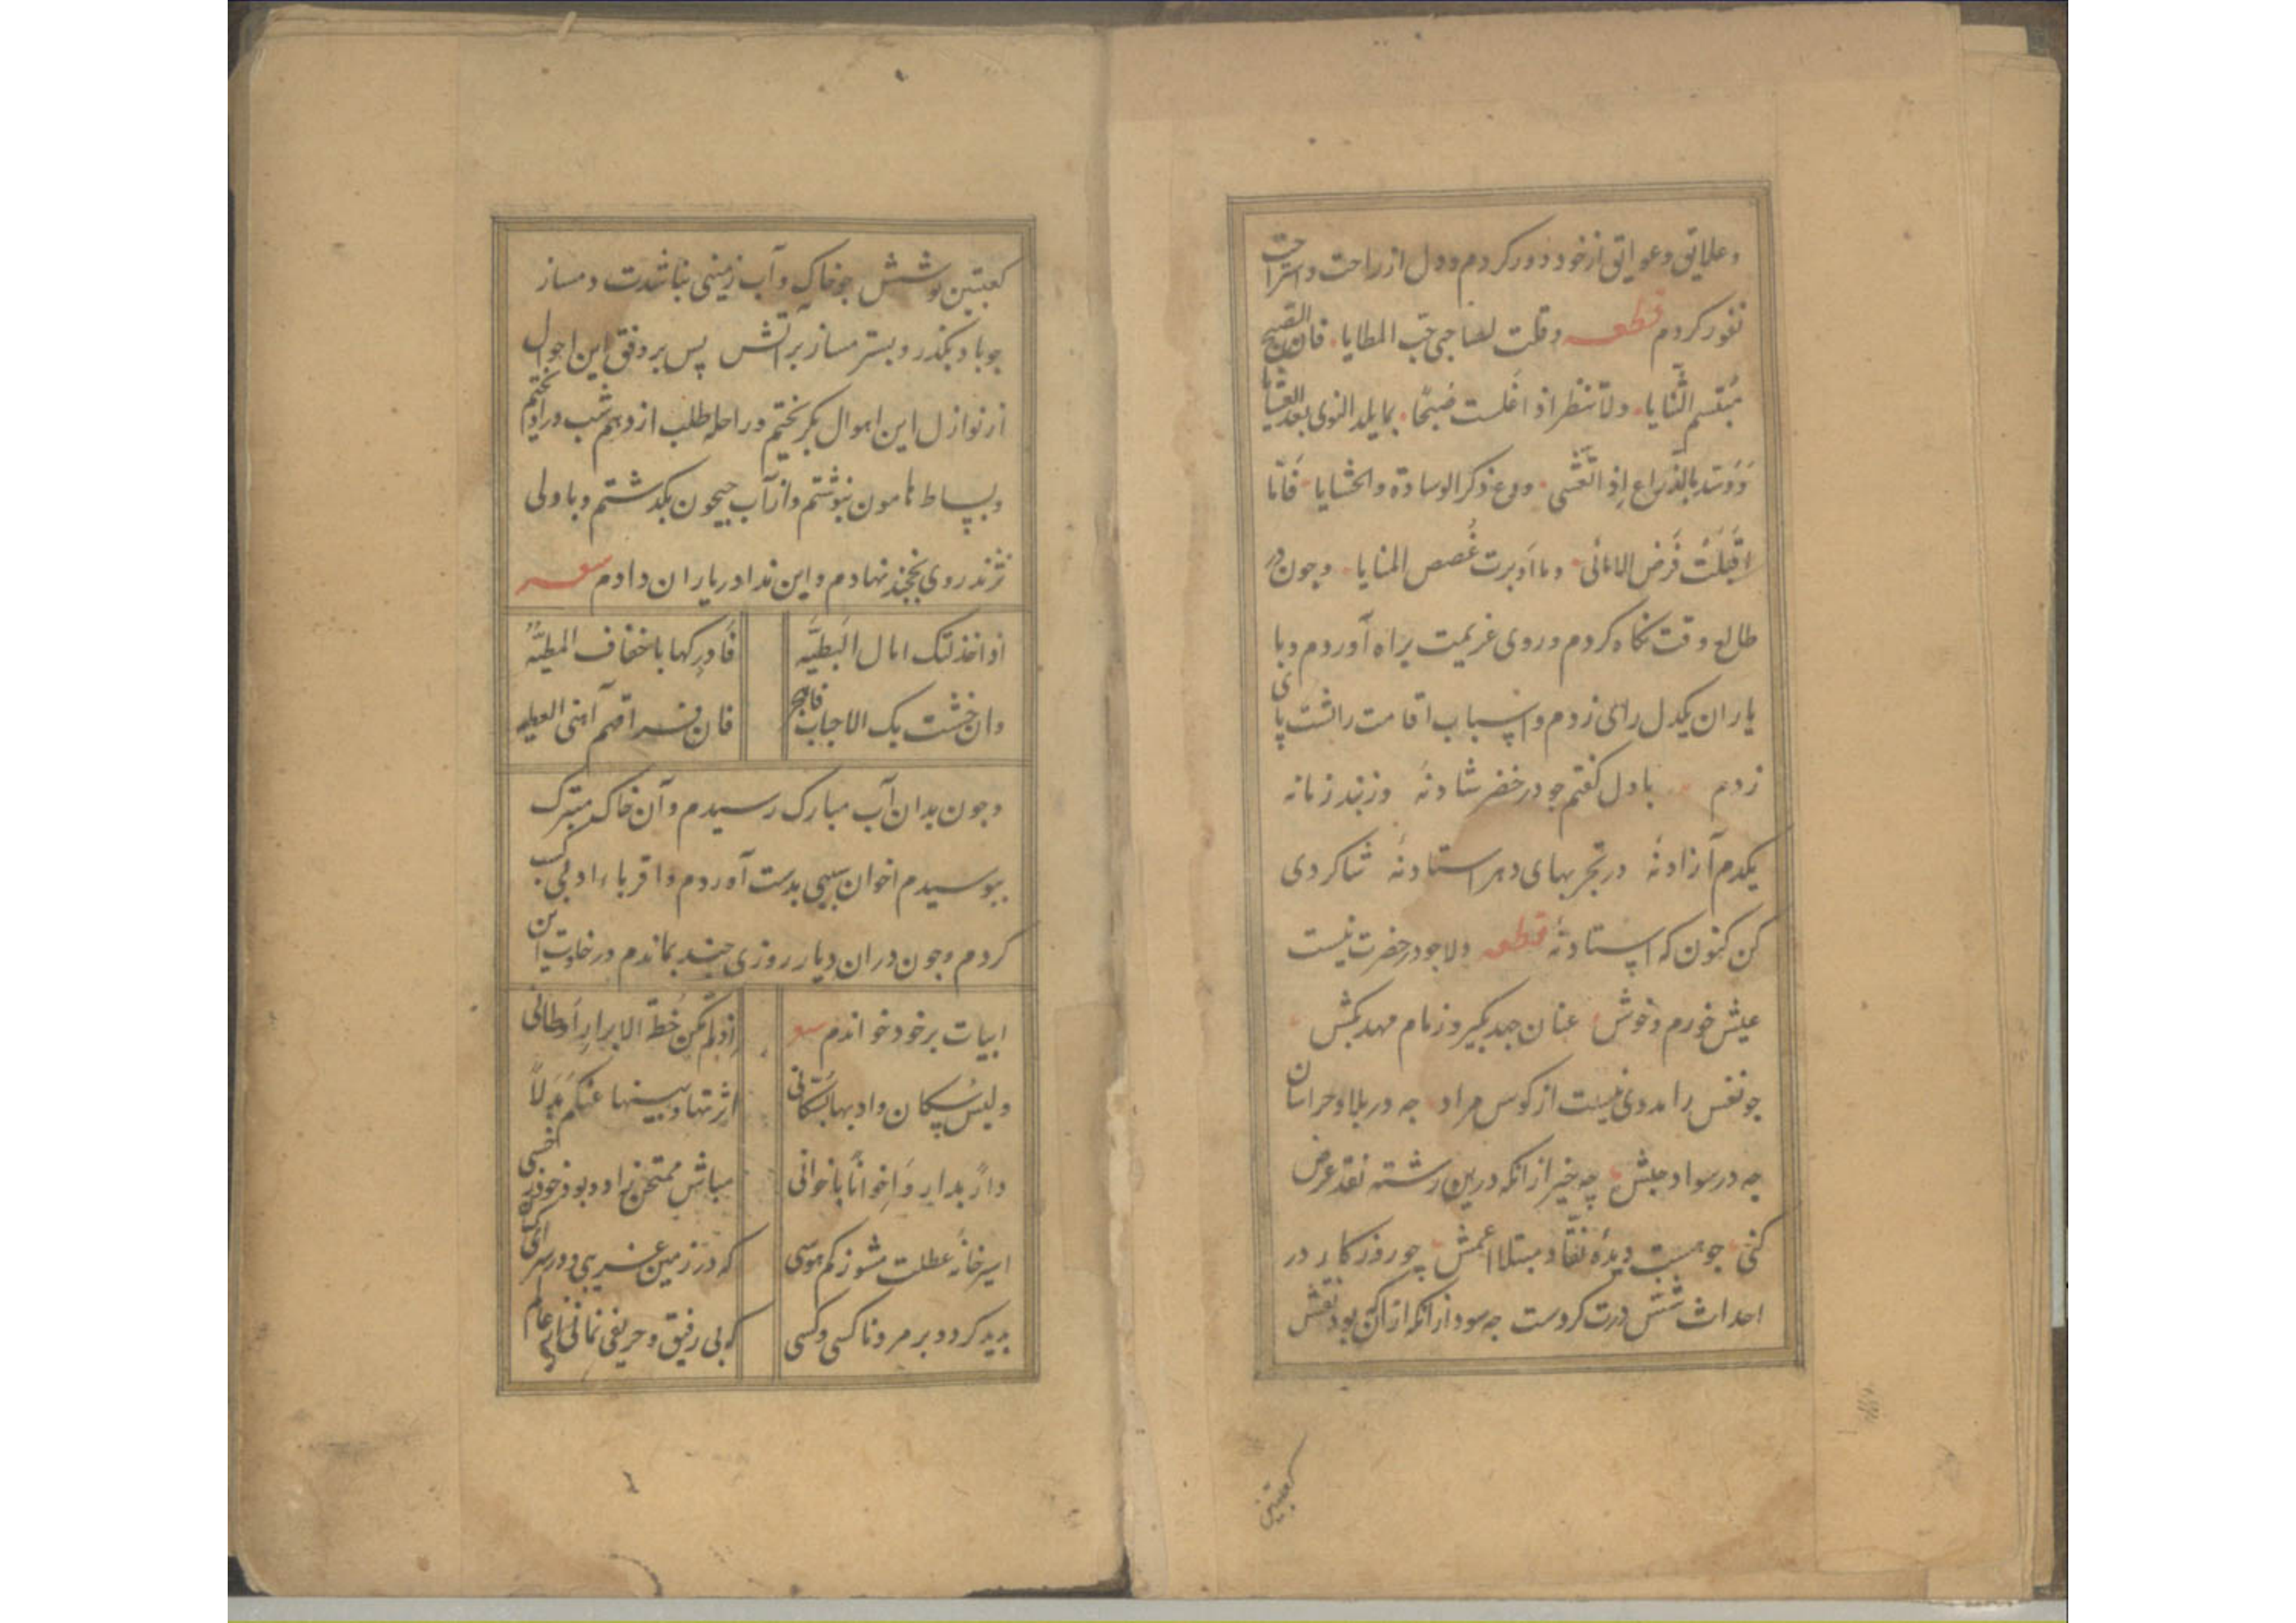 و علایق و عوایق از خود دور کردم و دل از راحت و استراحت
نفور کردم قطعه و قلت لصاحبی حب المطایا فان الصبح
مبتسم الثنایا ولا تنظر اذ اغلست صبحا بما یلد النوی بعد العشایا
وَوَسّد بالذّراع اِذِ اتّعَشّی ودع ذکر الوسادة والحشایا فَامّا
اقبَلَت فَرَضَ الامانی وما ادبرت غُصص المنایا و جون در
طالع وقت نکاه کردم و روی عزیمت براه آوردم و با
یاران یکدل رای زدم و اسباب اقامت را پشت پای
زدم با دل کفتم جو در خضر شادنهٔ وز بند زمانه
یکدم آزادنهٔ در تجربهای دهر استادنهٔ شاکردی
کن کنون که استادنهٔ قطعه دلا جو در حضرت نیست
عیش خورم و خوش عنان جهد بکیر و زمام مهد بکش
جو نفس را مددی نیست از کوس مراد جه در بلاد خراسان
جه در سواد حبش چه خیز از انکه درین رشته نقد عرض
کنی جو هست دیدهٔ نقّاد مبتلا اعمش چو روزکار در
احداث شش درت کردست جه سود از انکه از ان بود نقش
کعبتین
کعبتین تو شش جو خاک و آب زمینی بناشدت دمساز
جو باد بکذر و بستر مساز بر آتش پس بر وفق این احوال
از نوازل این اهوال بکریختم و راحلهٔ طلب از دهم شب در آویختم
و بساط هامون بنوشتم و از آب جیحون بکدشتم و با دلی
نژند روی بخجند نهادم و این ندا در یاران دادم شعر
اذا خذلتک امال البَطیَّه فَادرکها باخفاف المطیَّه
وان خشت بک الاحباب فاهجر فان فراقهم اهنی العطیه
و جون بدان آب مبارک رسیدم و آن خاک متبرک
ببوسیدم اخوان سببی بدست آوردم و اقرباء ادبی کسب
کردم و جون در ان دیار روزی جند بماندم در خاوت این
ابیات بر خود خواندم شعر اذ لم تکن خطة الابرار أوطانی
ولیس سکان وادیها بسکانی اثرتها وبینها عنکم بدلاً
داراً بدارٍ وَاخواناً باخوانی مباش ممتحن زاد و بود خود خسی
اسیر خانهٔ عطلت مشو ز کم هوسی که در زمین غریبی و در سرای کسان
بدید کردد بر مرد ناکسی و کسی که بی رفیق و حریفی نمانی در عالم